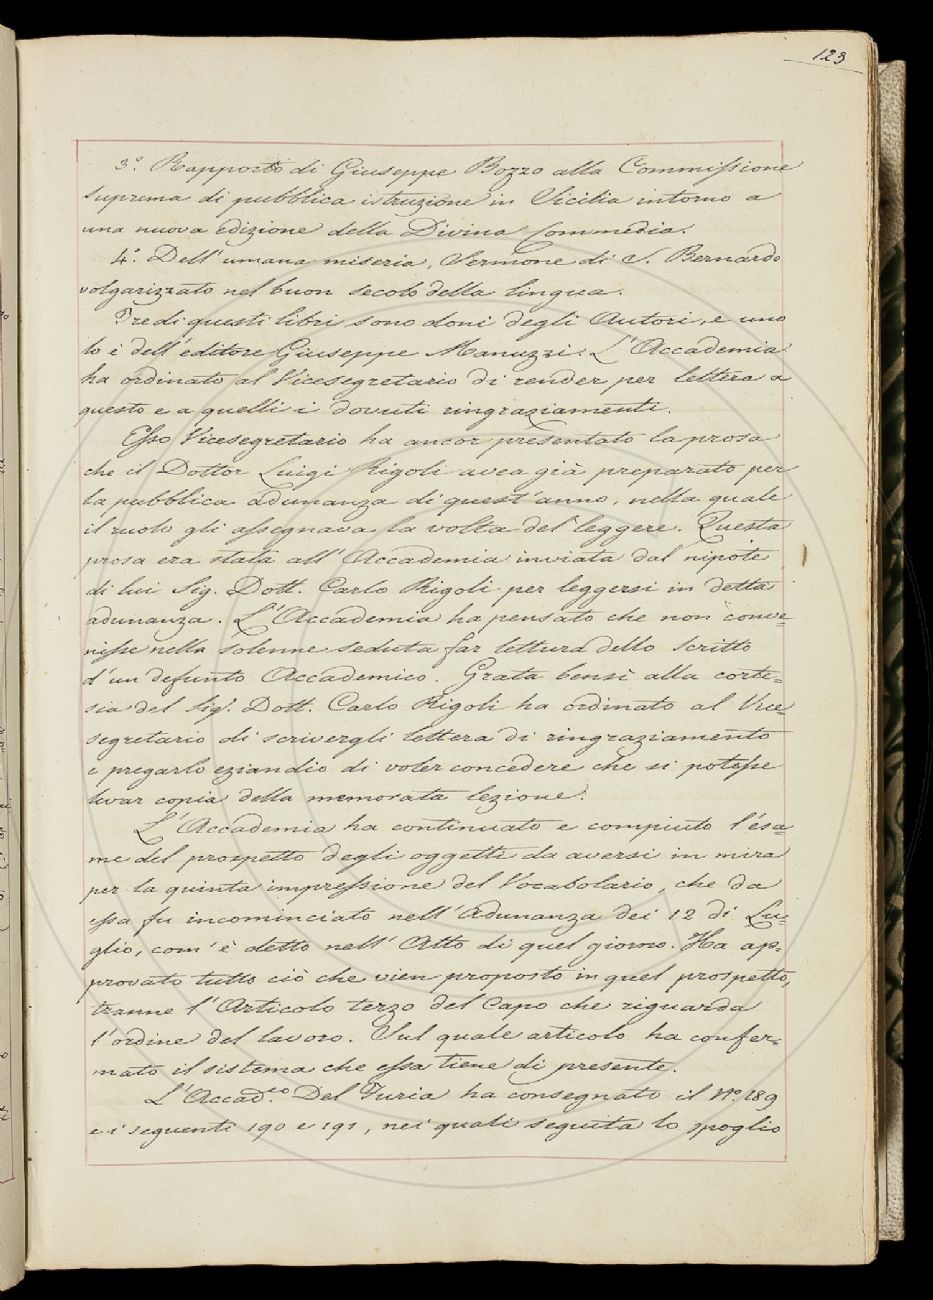 123
3.° Rapporto di Giuseppe Bozzo alla Commissione
suprema di pubblica istruzione in Sicilia intorno a
una nuova edizione della Divina Commedia.
4.° Dell'umana miseria, Sermone di S. Bernardo
volgarizzato nel buon secolo della lingua.
Tre di questi libri sono doni degli Autori, e uno
lo è dell'editore Giuseppe Manuzzi. L'Accademia
ha ordinato al Vicesegretario di render per lettera a
questo e a quelli i dovuti ringraziamenti.
Esso Vicesegretario ha ancor presentato la prosa
che il Dottor Luigi Rigoli avea già preparato per
la pubblica adunanza di quest'anno, nella quale
il ruolo gli assegnava la volta del leggere. Questa
prosa era stata all'Accademia inviata dal nipote
di lui Sig. Dott. Carlo Rigoli per leggersi in detta
adunanza. L'Accademia ha pensato che non conve=
nisse nella solenne seduta far lettura dello scritto
d'un defunto Accademico. Grata bensì alla corte=
sia del Sig. Dott. Carlo Rigoli ha ordinato al Vice=
segretario di scrivergli lettera di ringraziamento
e pregarlo eziandio di voler concedere che si potesse
levar copia della memorata lezione.
L'Accademia ha continuato e compiuto l'esa=
me del prospetto degli oggetti da aversi in mira
per la quinta impressione del Vocabolario, che da
essa fu incominciato nell'Adunanza dei 12 di Lu=
glio, com'è detto nell'Atto di quel giorno. Ha ap=
provato tutto ciò che vien proposto in quel prospetto,
tranne l'Articolo terzo del Capo che riguarda
l'ordine del lavoro. Sul quale articolo ha confer=
mato il sistema che essa tiene di presente.
L'Accad.co Del Furia ha consegnato il N.° 189
e i seguenti 190 e 191, nei quali seguita lo spoglio